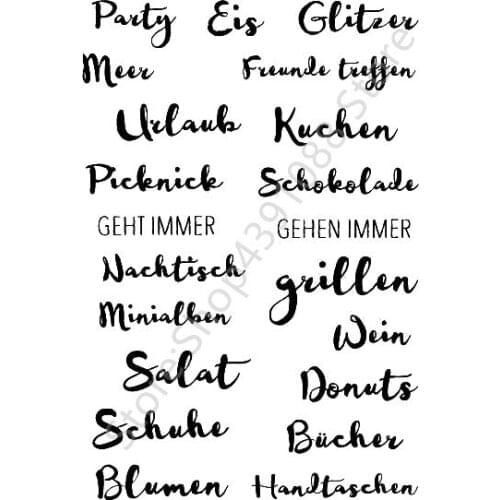 Party Eis Glitzer
Meer Freunde treffen
Urlaub Kuchen
Picknick Schokolade
GEHT IMMER GEHEN IMMER
Nachtisch grillen
Minialben Wein
Salat Donuts
Schuhe Bücher
Blumen Handtaschen
Store: Shop4391988 Store